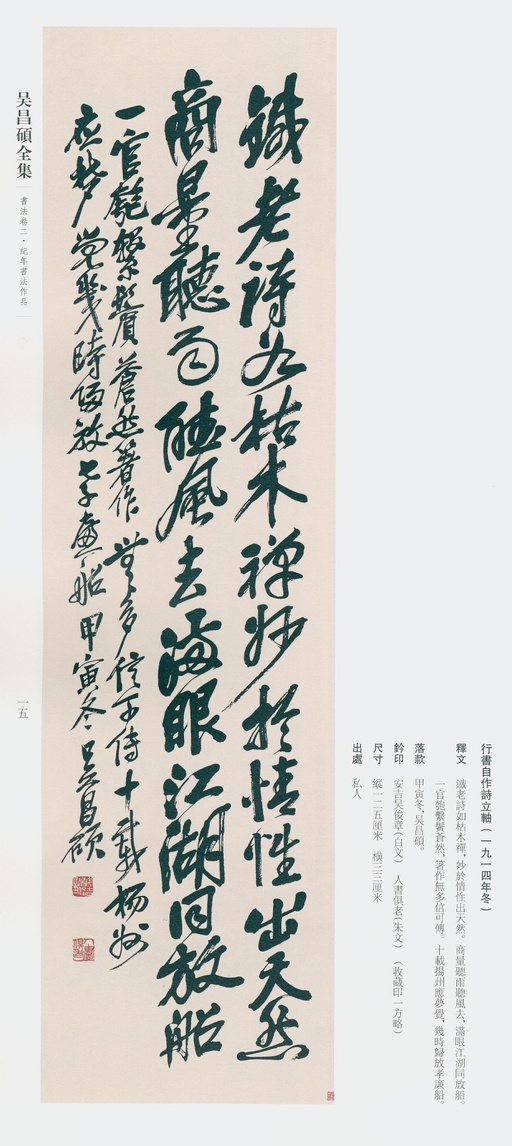 鐵老詩如枯木禪妙於情性出天然
商量聽雨聽風去滿眼江湖同放船
一官匏繫鬢蒼然著作無多信可傳十載揚州
應夢覺幾時歸放孝廉船甲寅冬吴昌碩
行書自作詩立軸(一九一四年冬)
釋文 鐵老詩如枯木禪,妙於情性出天然。商量聽雨聽風去,滿眼江湖同放船。
一官匏繫鬢蒼然,著作無多信可傳。十載揚州應夢覺,幾時歸放孝廉船。
落款 甲寅冬,吴昌碩。
鈐印 安吉吴俊章(白文) 人書俱老(朱文) (收藏印一方略)
尺寸 縱一二五厘米 橫三三厘米
出處 私人
吴昌碩全集
書法卷二·紀年書法作品
一五